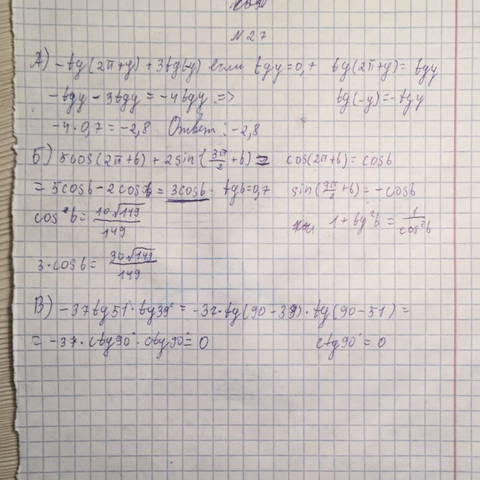 N27
А) -tg(2π+y) + 3tg(-y) если tgy=0,7 tg(2π+y)= tgy
-tgy - 3tgy = -4tgy => tg(-y)=-tgy
-4·0,7=-2,8 Ответ: -2,8
Б) 5cos(2π+b) + 2sin(3π/2+b) = cos(2π+b)=cosb
= 5cosb-2cosb=3cosb tgb=0,7 sin(3π/2+b)=-cosb
cos²b=10√149/149 1+tg²b=1/cos²b
3·cosb=
В) -37tg51°·tg39°= -37·tg(90-39)·tg(90-51)=
= -37·ctg90°·ctg90°=0 ctg90°=0